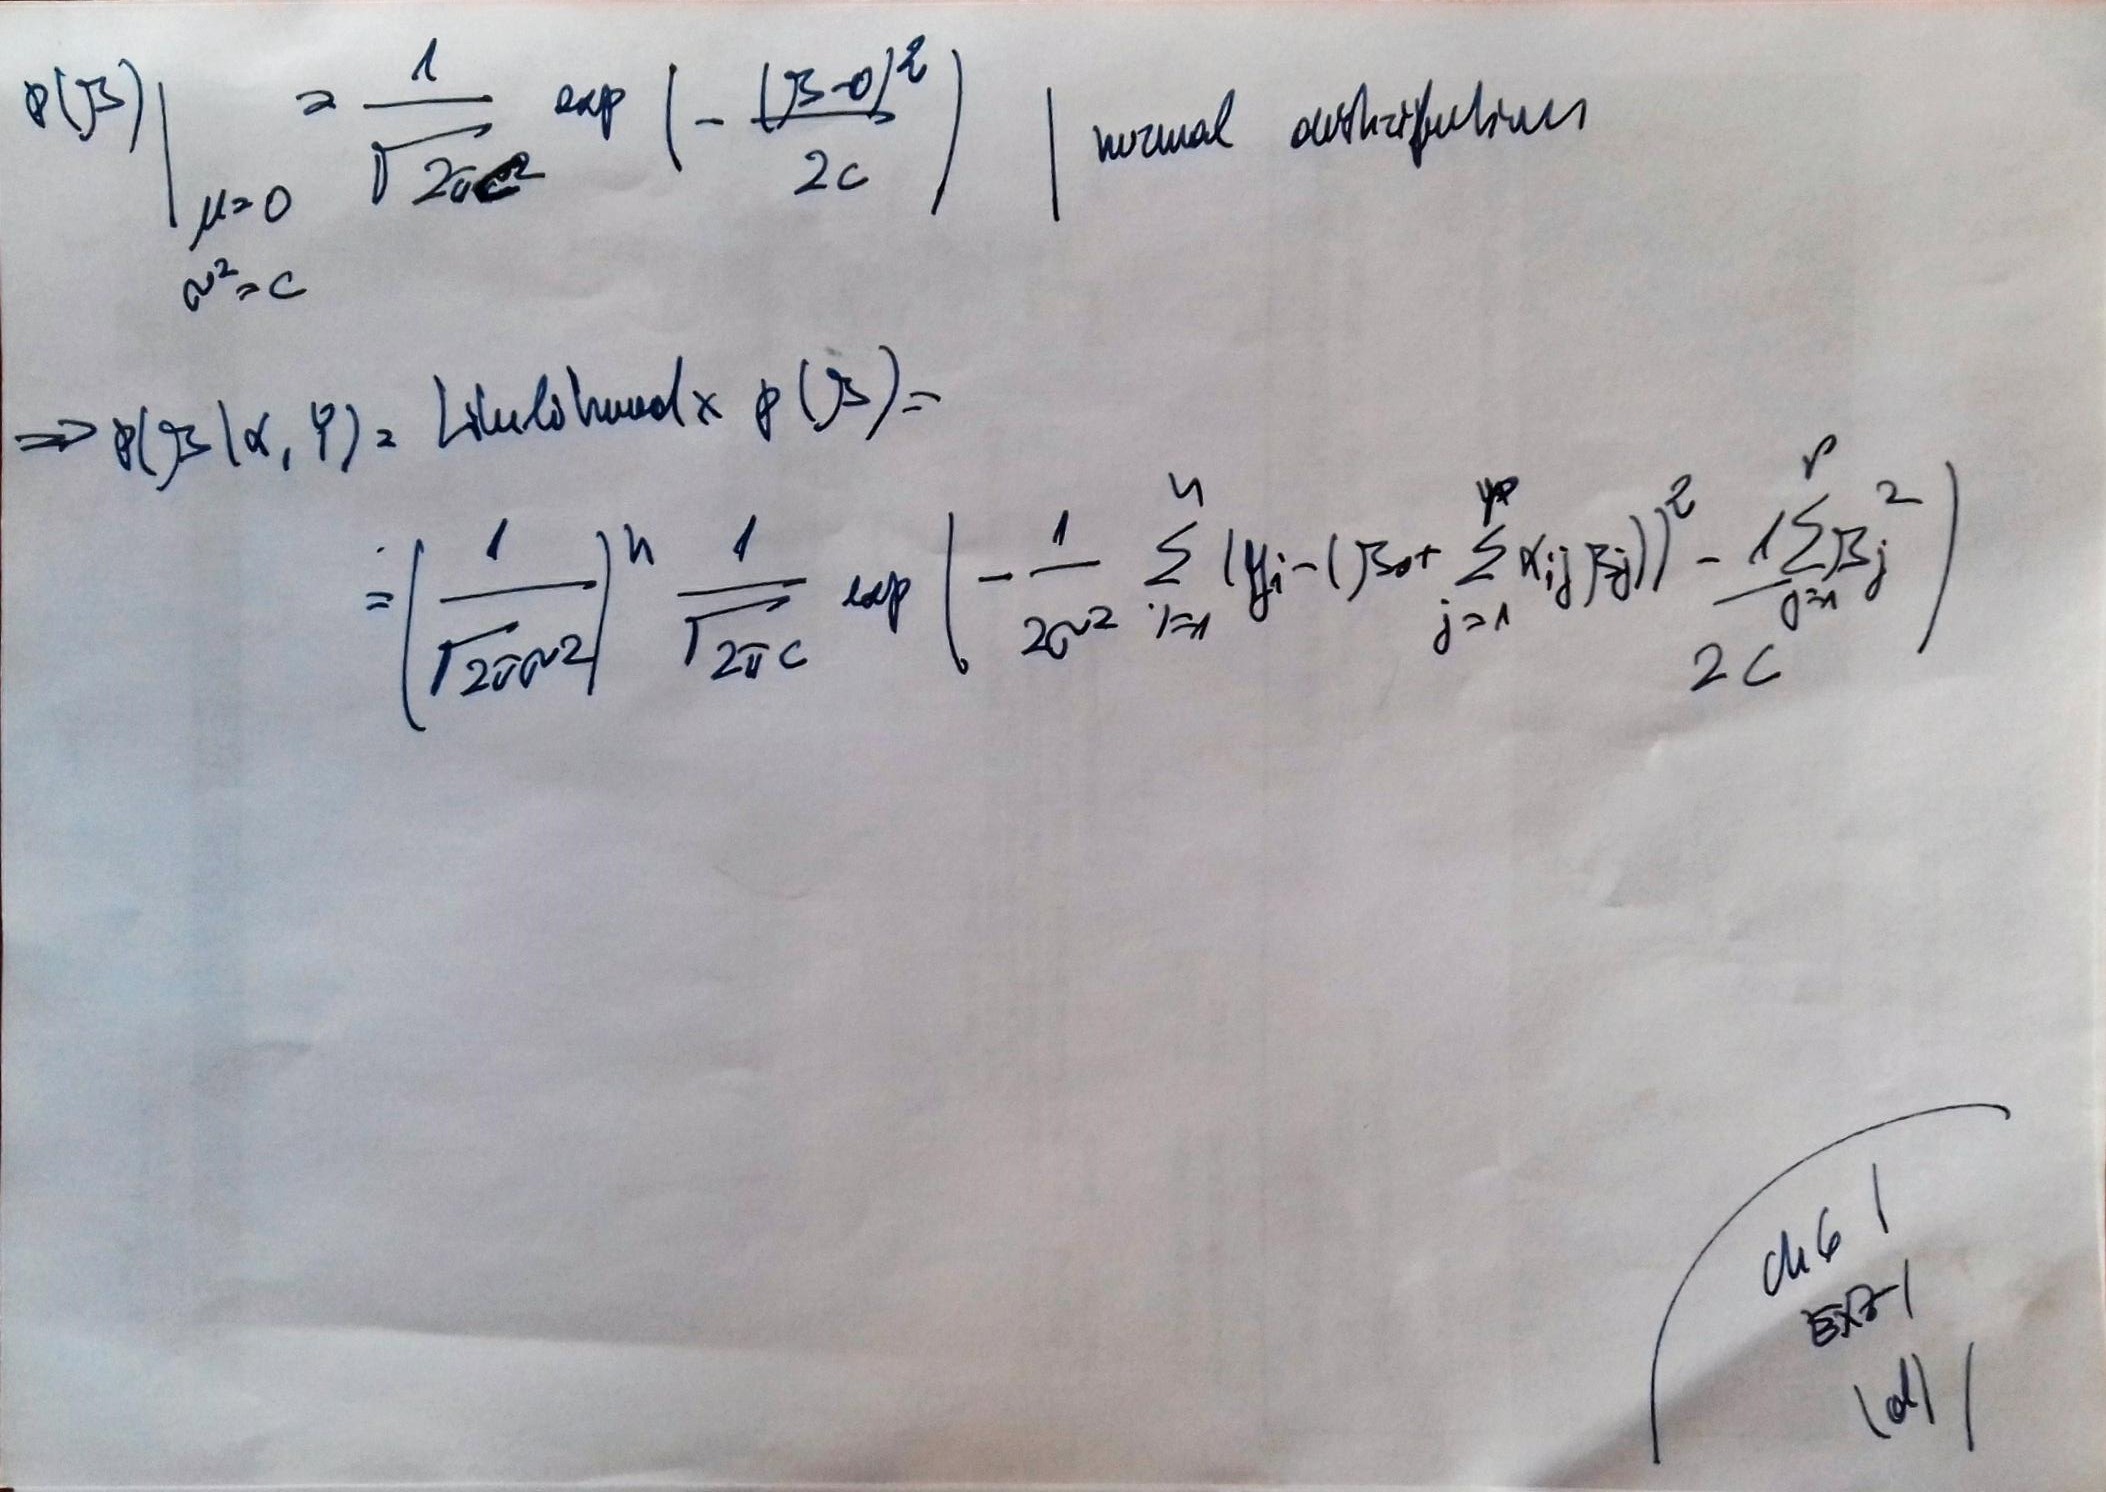 p(β)|μ=0 σ²=c = 1/√2πc exp(-(β-0)²/2c) | normal distribution
⇒ p(β|x, y) = Likelihood × p(β) =
= (1/√2πσ²)ⁿ 1/√2πc exp(-1/2σ² Σⁿi=1 (yi-(β0+ Σᵖj=1 xijβj))² - 1/2c Σᵖj=1 βj²)
ch 6 |
Ex 7 |
(d) |